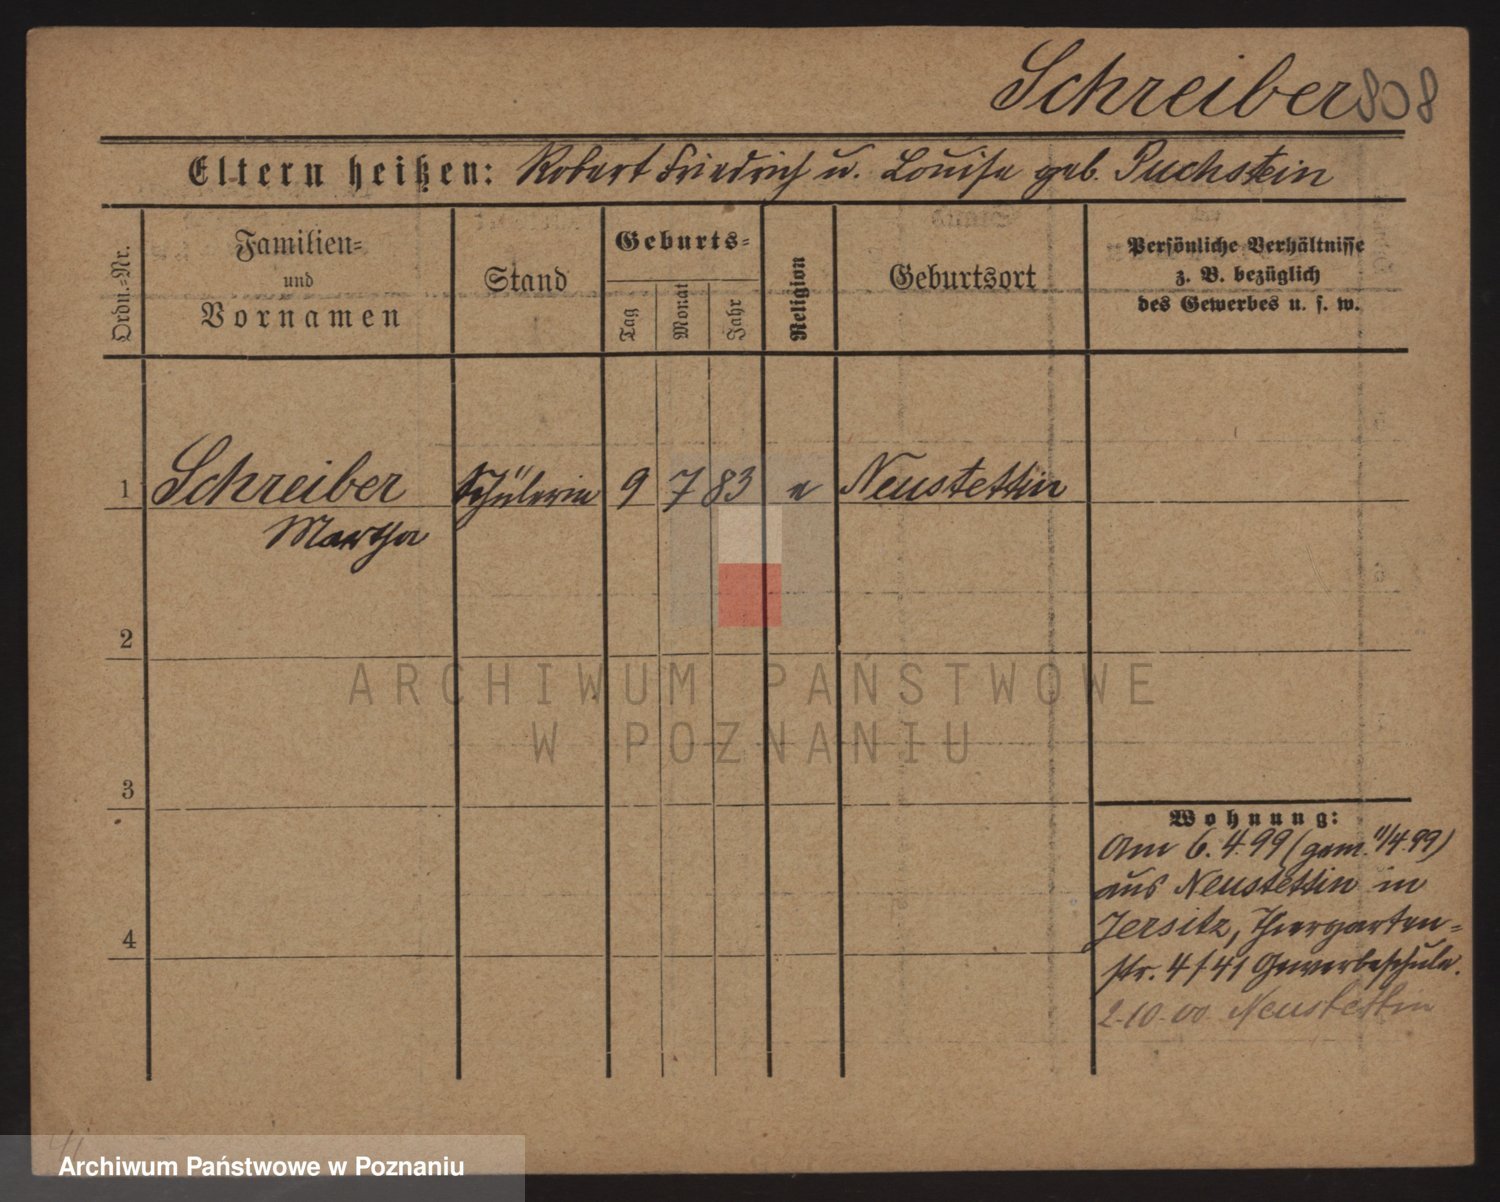 Schreiber 808
Eltern heißen: Robert Friedrich u. Louise geb. Puchstein
Ordn.-Nr.
Familien-
und
Vornamen
Stand
Geburts-
Tag
Monat
Jahr
Religion
Geburtsort
Persönliche Verhältnisse
z. B. bezüglich
des Gewerbes u. s. w.
1 Schreiber Schülerin 9 7 83 e Neustettin
Martha
2
3
4
Wohnung:
Am 6.4.99 (gem. 11/4.99)
aus Neustettin in
Jersitz, Thiergarten-
str. 4/41 Gewerbeschule.
2-10-00 Neustettin
ARCHIWUM PAŃSTWOWE
W POZNANIU
Archiwum Państwowe w Poznaniu